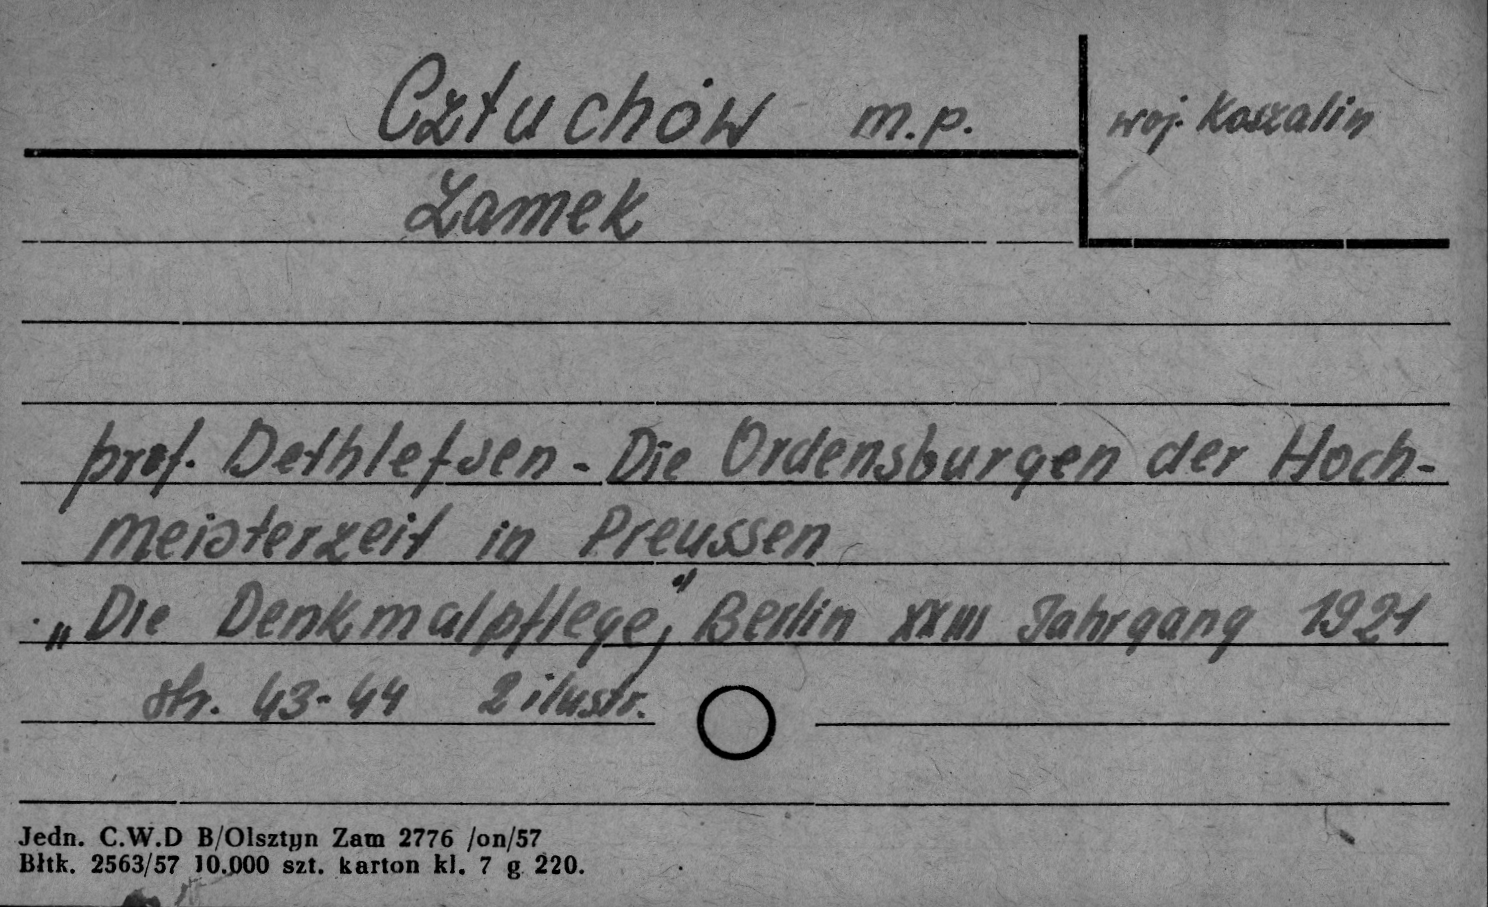 Człuchów m.p. woj. Koszalin
Zamek
prof. Dethlefsen - Die Ordensburgen der Hoch-
meisterzeit in Preussen
„Die Denkmalpflege”, Berlin XXIII Jahrgang 1921
str. 43-44 2 ilustr.
Jedn. C.W.D B/Olsztyn Zam 2776 /on/57
Błtk. 2563/57 10.000 szt. karton kl. 7 g 220.